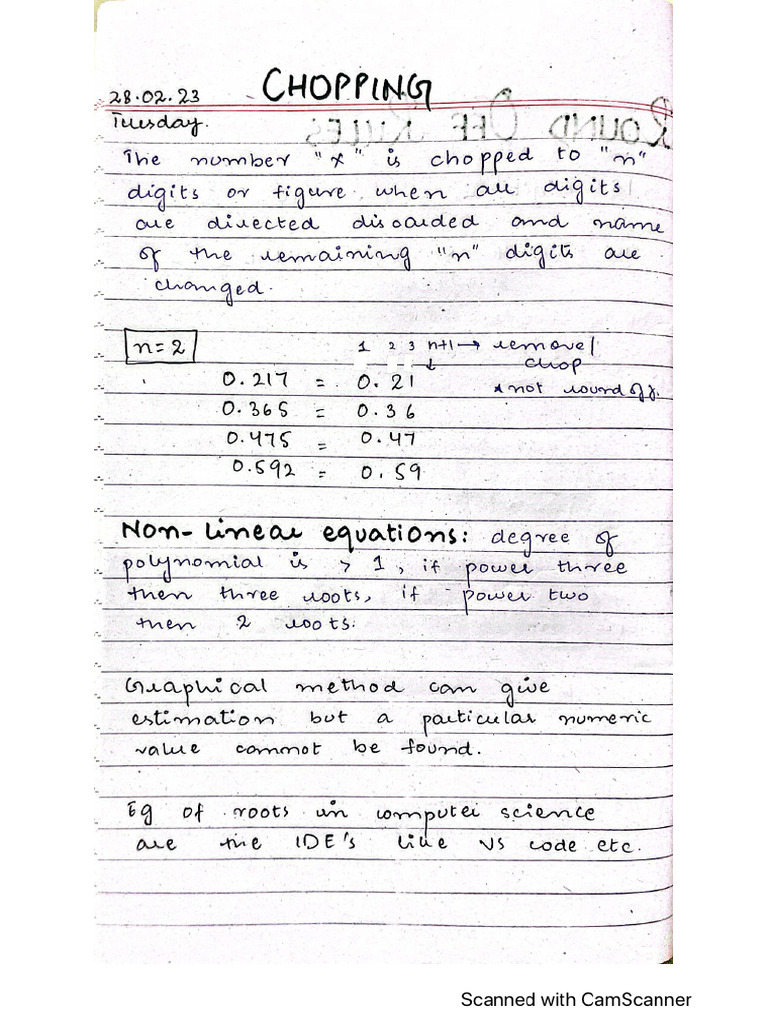 CHOPPING
28.02.23
Tuesday.
The number "x" is chopped to "n"
digits or figure when all digits
are directed discarded and name
of the remaining "n" digits are
changed.
n=2
1 2 3 n+1 → remove/
chop
0.217 = 0.21
* not round off.
0.365 = 0.36
0.475 = 0.47
0.592 = 0.59
Non-linear equations: degree of
polynomial is > 1, if power three
then three roots, if power two
then 2 roots.
Graphical method can give
estimation but a particular numeric
value cannot be found.
Eg of roots in computer science
are the IDE's like VS code etc.
Scanned with CamScanner